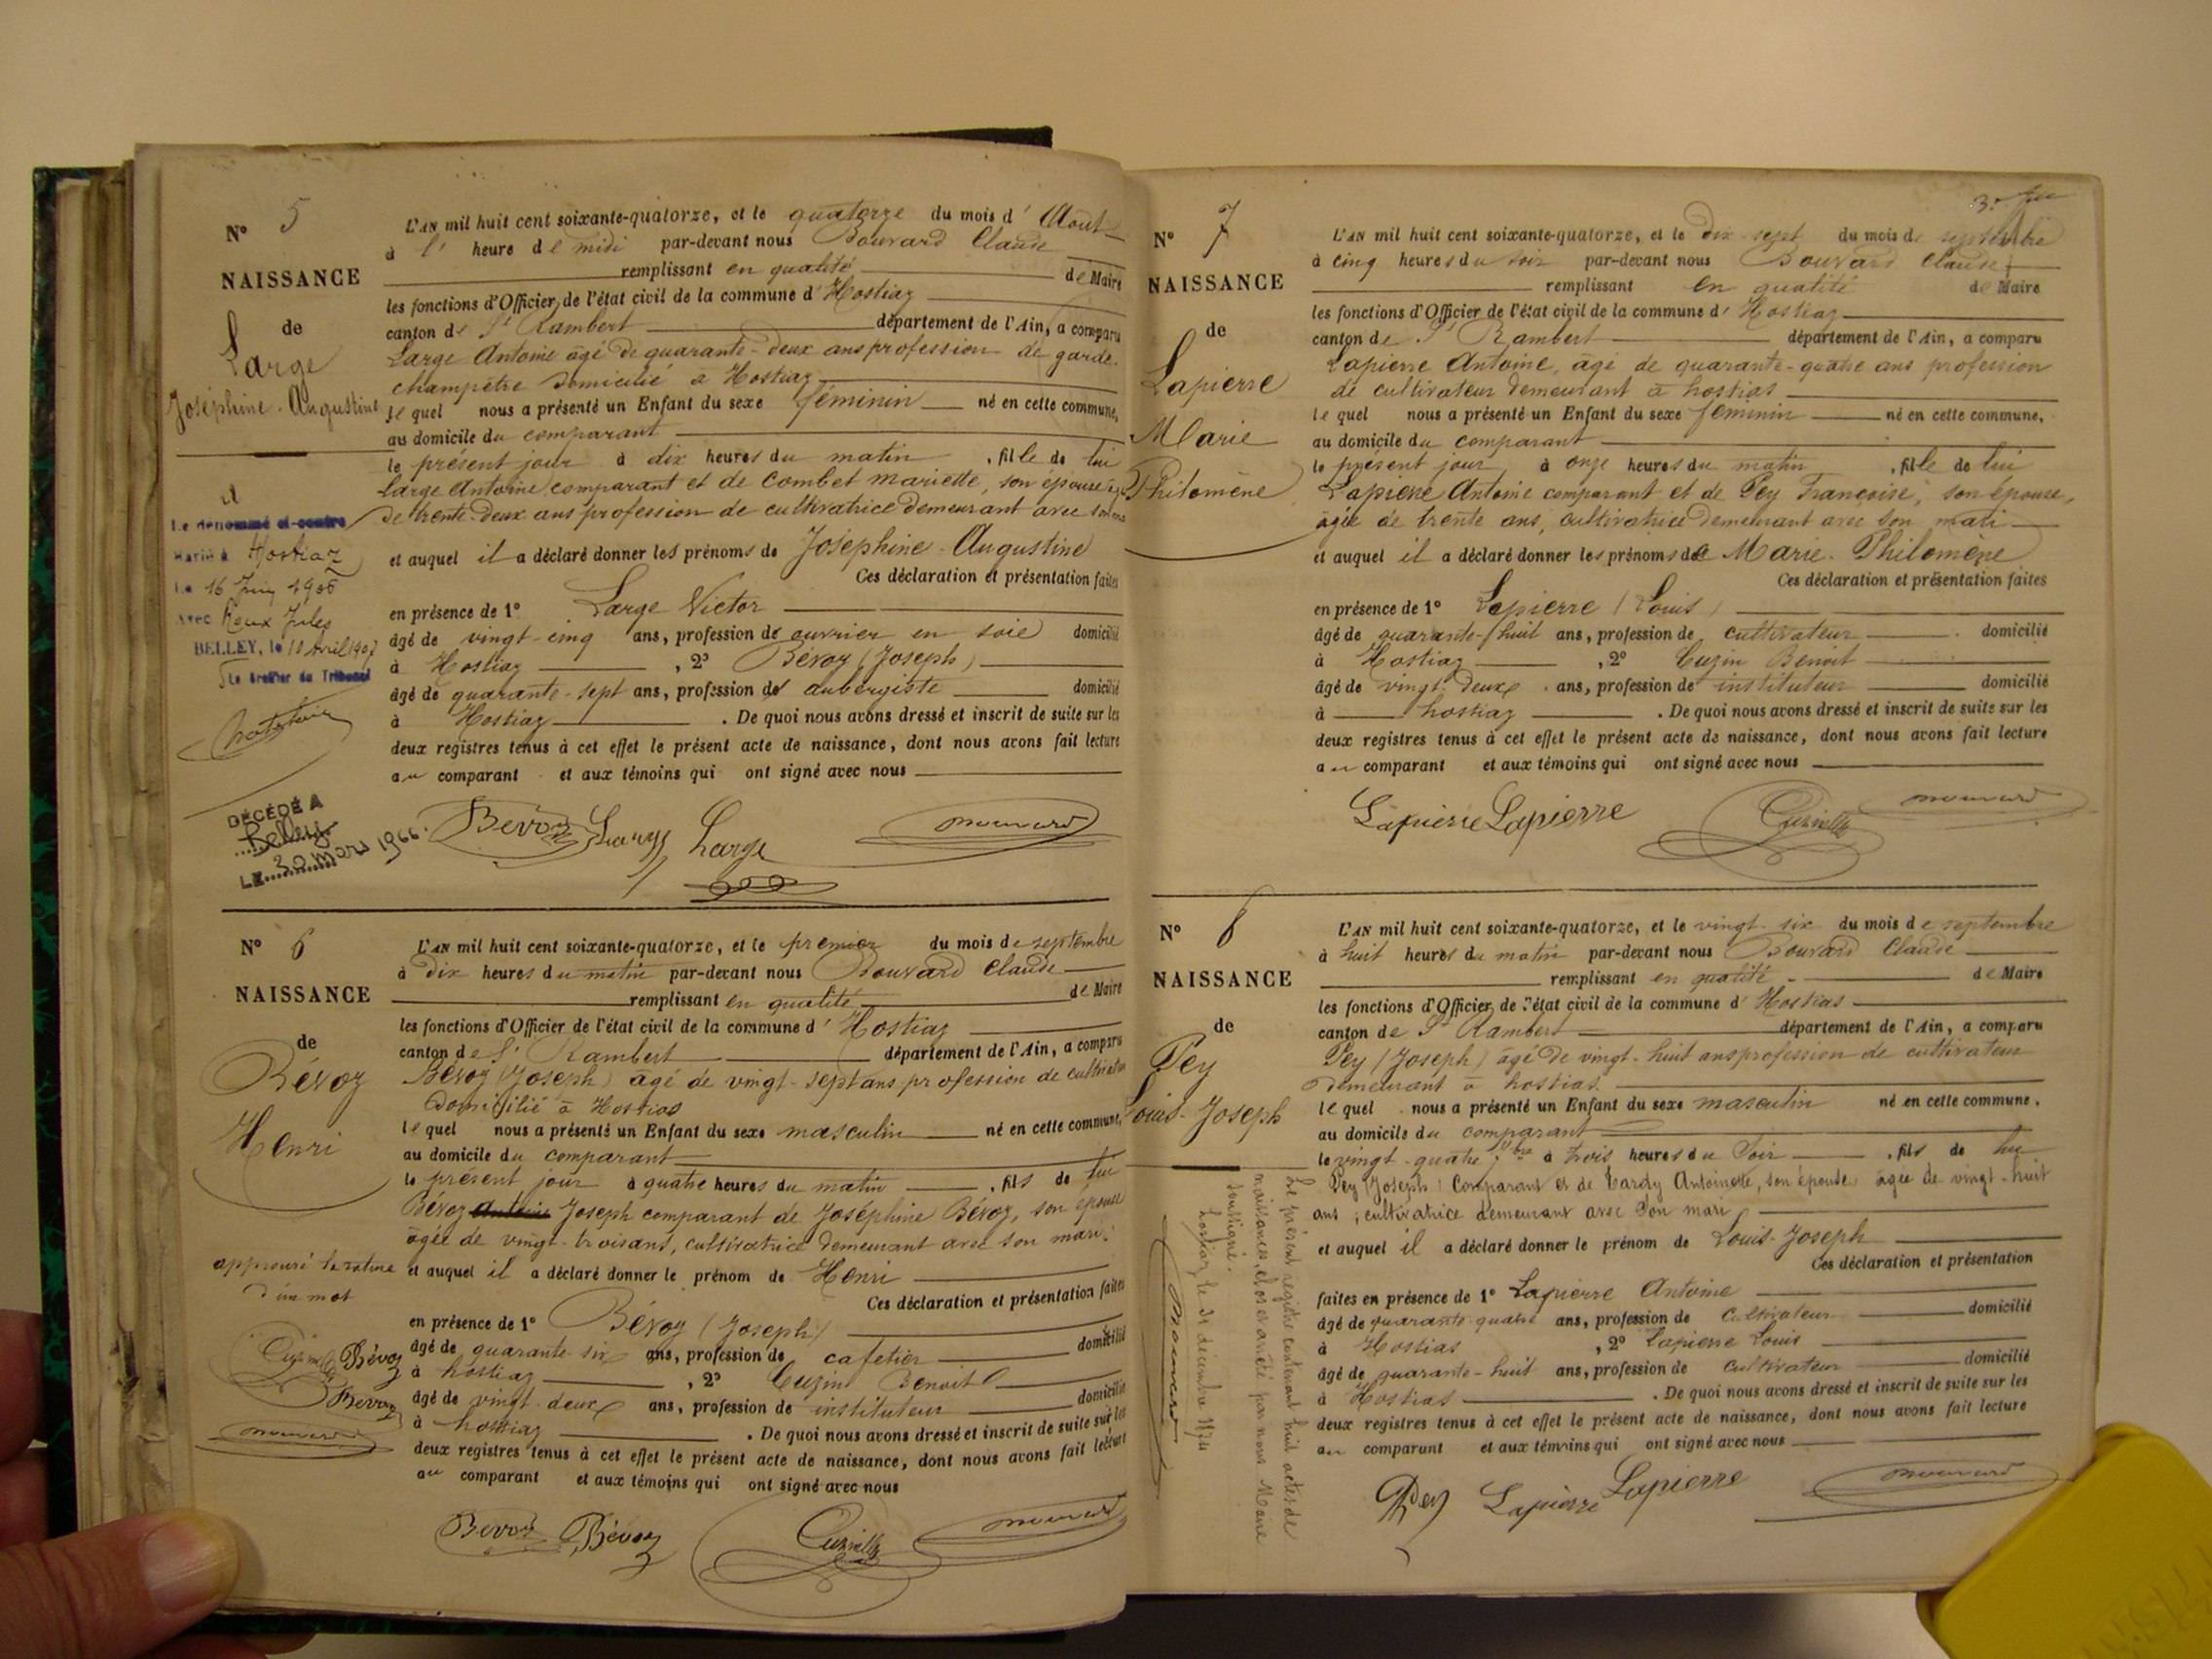 N° 5
NAISSANCE
de
Large
Joséphine-Augustine
Le dénommé ci-contre
Marié à Hostiaz
Le 16 Juin 1906
Avec Roux Jules
BELLEY, le 10 Avril 1907
Le Greffier du Tribunal
DÉCÉDÉ A
Belley
LE 30 mars 1966.
L'AN mil huit cent soixante-quatorze, et le quatorze du mois d' Aout
à l' heure de midi par-devant nous Bouvard Claude
remplissant en qualité de Maire
les fonctions d'Officier de l'état civil de la commune d' Hostiaz
canton de St Rambert département de l'Ain, a comparu
Large Antoine âgé de quarante-deux ans profession de garde-
champêtre domicilié à Hostiaz
lequel nous a présenté un Enfant du sexe féminin né en cette commune,
au domicile du comparant
le présent jour à dix heures du matin, fille de lui
Large Antoine comparant et de Combet Mariette, son épouse
de trente-deux ans profession de cultivatrice demeurant avec son
et auquel il a déclaré donner les prénoms de Joséphine-Augustine
Ces déclaration et présentation faites
en présence de 1° Large Victor
âgé de vingt-cinq ans, profession de ouvrier en soie domicilié
à Hostiaz, 2° Bévoz (Joseph)
âgé de quarante-sept ans, profession des aubergiste domicilié
à Hostiaz. De quoi nous avons dressé et inscrit de suite sur les
deux registres tenus à cet effet le présent acte de naissance, dont nous avons fait lecture
au comparant et aux témoins qui ont signé avec nous
Bévoz Large Large Bouvard
N° 6
NAISSANCE
de
Bévoz
Henri
approuvé la rature
d'un mot
Bévoz
Bévoz
L'AN mil huit cent soixante-quatorze, et le premier du mois de septembre
à dix heures du matin par-devant nous Bouvard Claude
remplissant en qualité de Maire
les fonctions d'Officier de l'état civil de la commune d' Hostiaz
canton de St Rambert département de l'Ain, a comparu
Bévoz (Joseph) âgé de vingt-sept ans profession de cultivateur
domicilié à Hostias
lequel nous a présenté un Enfant du sexe masculin né en cette commune,
au domicile du comparant
le présent jour à quatre heures du matin, fils de lui
Bévoz Antoine Joseph comparant de Joséphine Bévoz, son épouse
âgée de vingt-trois ans, cultivatrice demeurant avec son mari.
et auquel il a déclaré donner le prénom de Henri
Ces déclaration et présentation faites
en présence de 1° Bévoz (Joseph)
âgé de quarante-six ans, profession de cafetier domicilié
à hostiaz, 2° Cuzin Benoit
âgé de vingt-deux ans, profession de instituteur domicilié
à hostiaz. De quoi nous avons dressé et inscrit de suite sur les
deux registres tenus à cet effet le présent acte de naissance, dont nous avons fait lecture
au comparant et aux témoins qui ont signé avec nous
Bévoz Bévoz Cuzin Bouvard
N° 7
NAISSANCE
de
Lapierre
Marie
Philomène
L'AN mil huit cent soixante-quatorze, et le dix-sept du mois de septembre
à cinq heures du soir par-devant nous Bouvard Claude
remplissant en qualité de Maire
les fonctions d'Officier de l'état civil de la commune d' Hostiaz
canton de St Rambert département de l'Ain, a comparu
Lapierre Antoine, âgé de quarante-quatre ans profession
de cultivateur demeurant à hostias
lequel nous a présenté un Enfant du sexe féminin né en cette commune,
au domicile du comparant
le présent jour, à onze heures du matin, fille de lui
Lapierre Antoine comparant et de Pey Françoise, son épouse,
âgée de trente ans, cultivatrice demeurant avec son mari
et auquel il a déclaré donner les prénoms de Marie-Philomène
Ces déclaration et présentation faites
en présence de 1° Lapierre (Louis)
âgé de quarante-huit ans, profession de cultivateur domicilié
à Hostiaz, 2° Cuzin Benoit
âgé de vingt-deux ans, profession de instituteur domicilié
à hostiaz. De quoi nous avons dressé et inscrit de suite sur les
deux registres tenus à cet effet le présent acte de naissance, dont nous avons fait lecture
au comparant et aux témoins qui ont signé avec nous
Lapierre Lapierre Cuzin Bouvard
N° 8
NAISSANCE
de
Pey
Louis-Joseph
Le présent registre contenant huit actes de
naissances, clos et arrêté par nous Maire
soussigné.
Hostiaz, le 31 décembre 1874
Bouvard
L'AN mil huit cent soixante-quatorze, et le vingt-six du mois de septembre
à huit heures du matin par-devant nous Bouvard Claude
remplissant en qualité de Maire
les fonctions d'Officier de l'état civil de la commune d' Hostias
canton de St Rambert département de l'Ain, a comparu
Pey (Joseph) âgé de vingt-huit ans profession de cultivateur
demeurant à hostias.
lequel nous a présenté un Enfant du sexe masculin né en cette commune.
au domicile du comparant
le vingt-quatre 7bre à trois heures du soir, fils de lui
Pey (Joseph) Comparant et de Tardy Antoinette, son épouse âgée de vingt-huit
ans, cultivatrice demeurant avec son mari
et auquel il a déclaré donner le prénom de Louis-Joseph
Ces déclaration et présentation
faites en présence de 1° Lapierre Antoine
âgé de quarante-quatre ans, profession de Cultivateur domicilié
à Hostias, 2° Lapierre Louis
âgé de quarante-huit ans, profession de cultivateur domicilié
à Hostias. De quoi nous avons dressé et inscrit de suite sur les
deux registres tenus à cet effet le présent acte de naissance, dont nous avons fait lecture
au comparant et aux témoins qui ont signé avec nous
Pey Lapierre Lapierre Bouvard